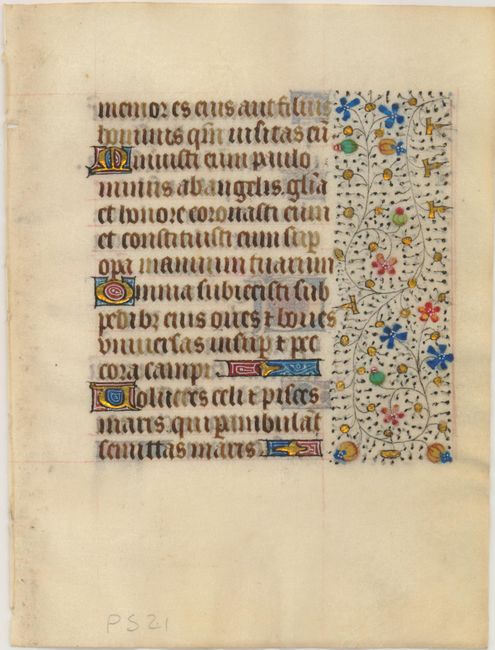 memor es eius aut filius
hominis qm̄ uisitas eū
Minuisti eum paulo
minus ab angelis. glīa
et honore coronasti eum
et constituisti eum sup
opa manuum tuarum
Omnia subiecisti sub
pedibꝫ eius oues ⁊ boues
vniuersas insup ⁊ pec
cora campi
Volucres celi ⁊ pisces
maris. qui pambulāt
semittas maris
PS21